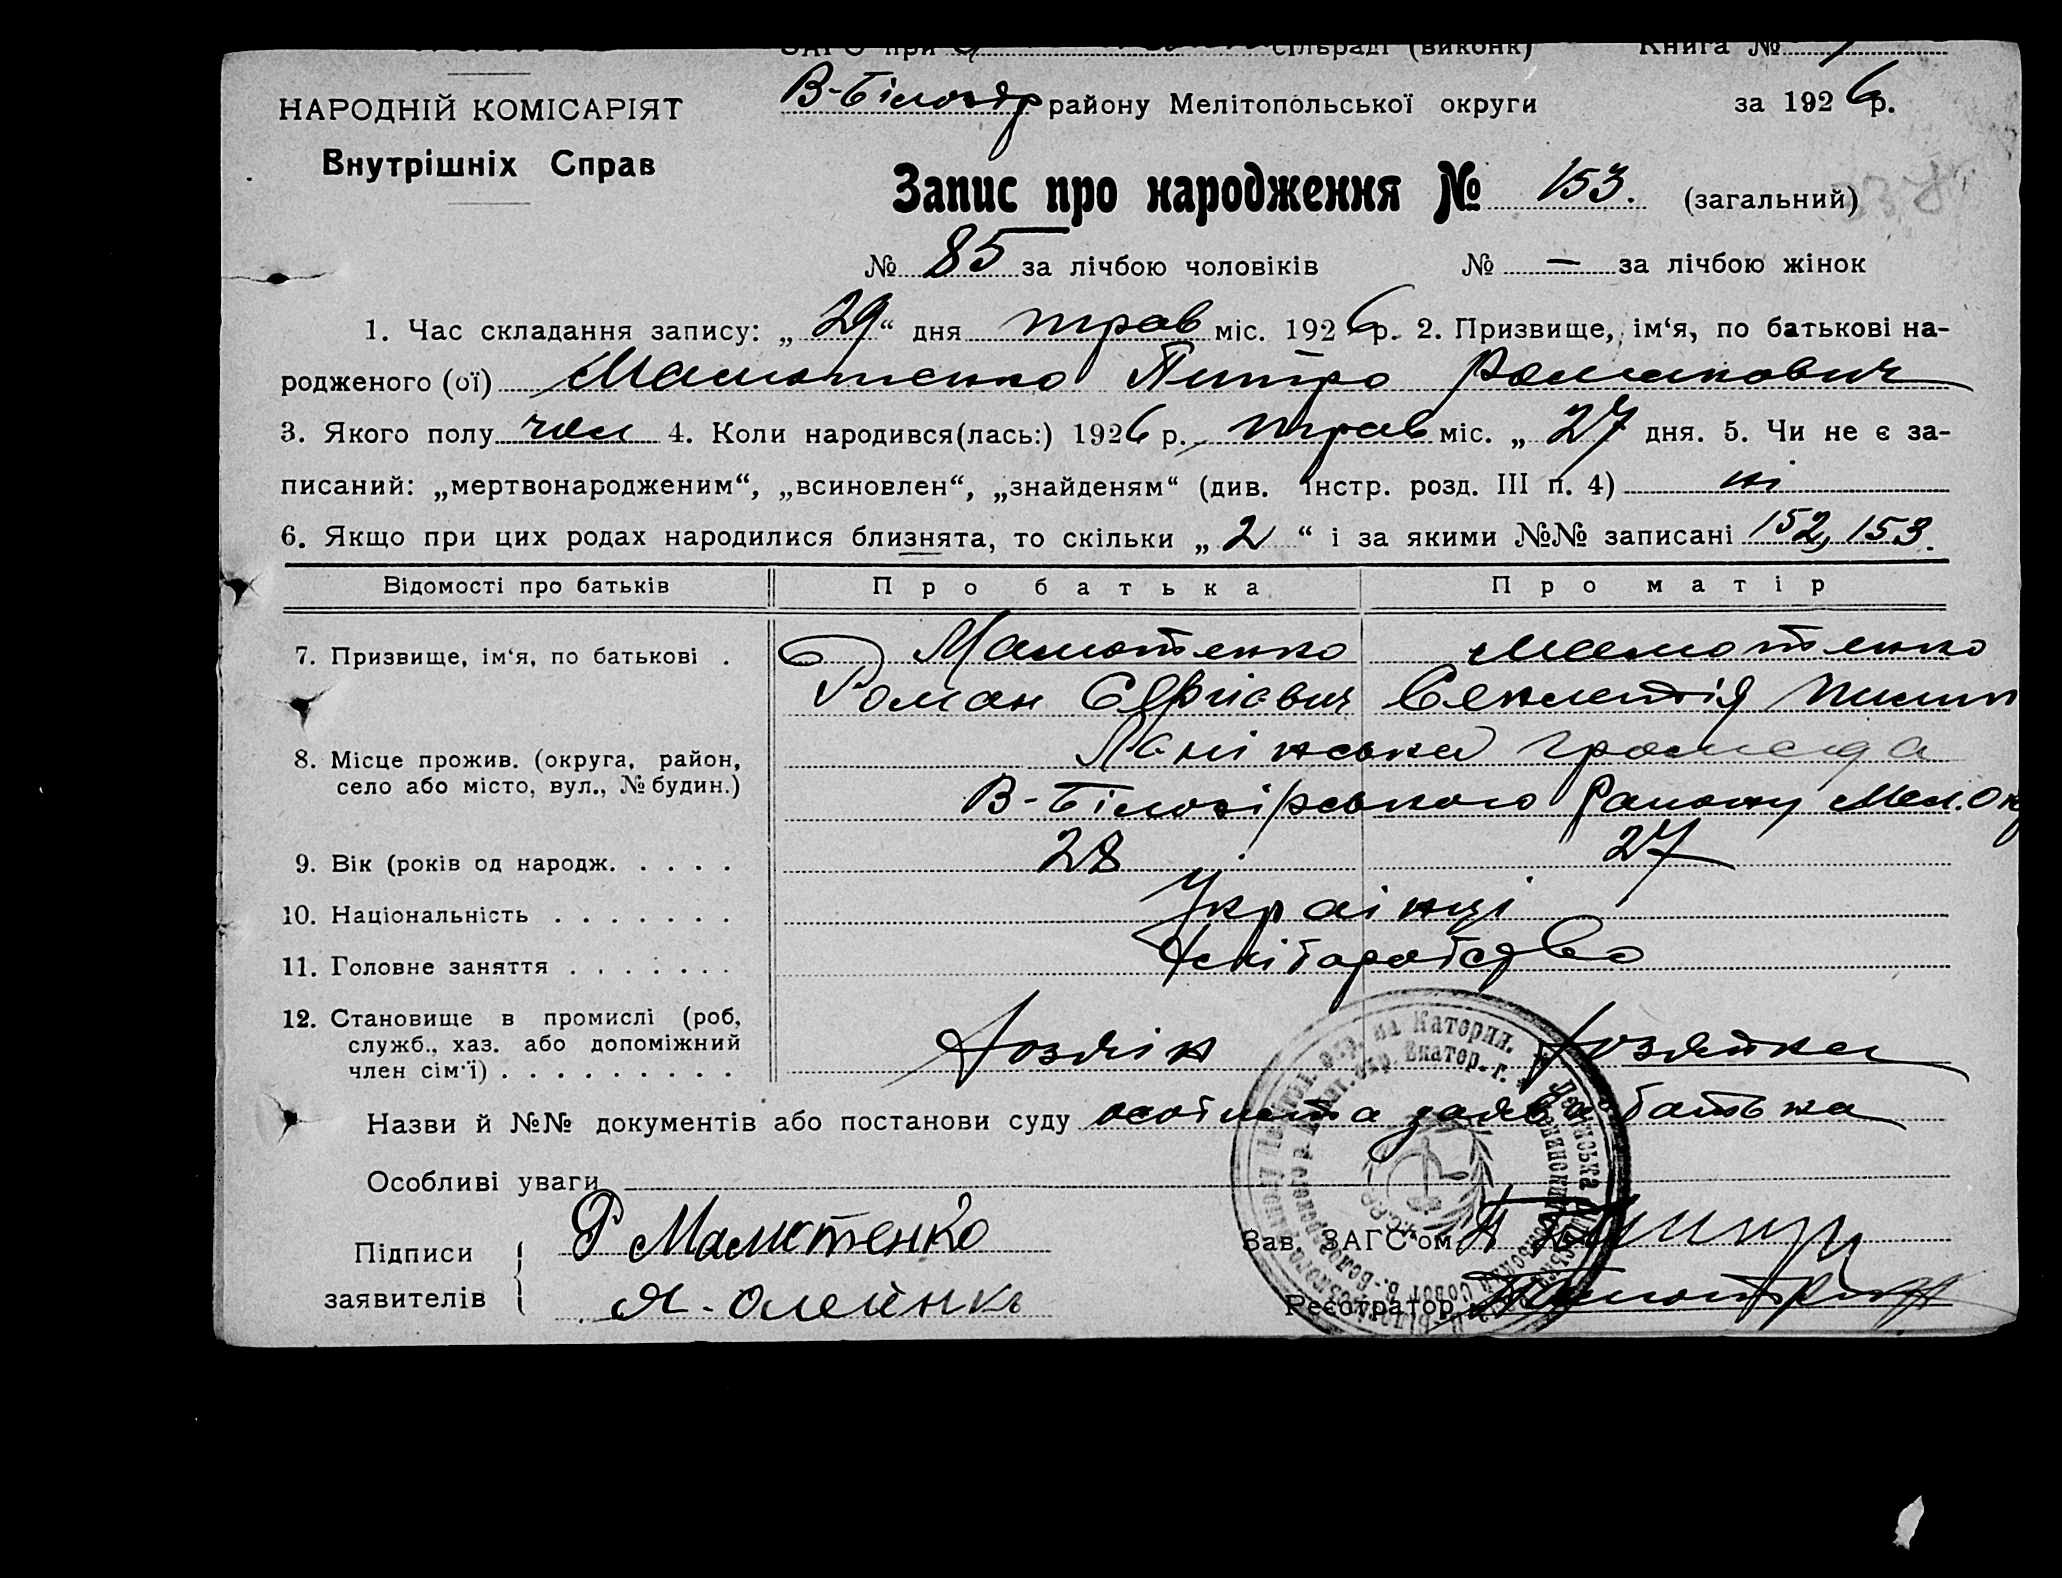 ЗАГС при сільраді (виконк) Книга №
НАРОДНІЙ КОМІСАРІЯТ
Внутрішніх Справ
В-Білозір району Мелітопольської округи за 1926 р.
Запис про народження № 153. (загальний)
№ 85 за лічбою чоловіків № — за лічбою жінок
1. Час складання запису: „29“ дня трав міс. 1926 р. 2. Призвище, ім‘я, по батькові на-
родженого (ої) Мамотенко Питро Романович
3. Якого полу чол 4. Коли народився(лась:) 1926 р. трав міс. „27 дня. 5. Чи не є за-
писаний: „мертвонародженим“, „всиновлен“, „знайденям“ (див. інстр. розд. III п. 4) ні
6. Якщо при цих родах народилися близнята, то скільки „2“ і за якими №№ записані 152, 153.
Відомості про батьків Про батька Про матір
7. Призвище, ім‘я, по батькові . Мамотенко Мамотенко
Роман
8. Місце прожив. (округа, район,
село або місто, вул., № будин.)
громада
В-Білозірського району Мел. Ок
9. Вік (років од народж. . . . . 28 27
10. Національність . . . . . . . Українці
11. Головне заняття . . . . . . . Хліборобство
12. Становище в промислі (роб,
служб., хаз. або допоміжний
член сім‘ї) . . . . . . . . . Хозяїн Хозяйка
Назви й №№ документів або постанови суду особиста заява батька
Особливі уваги
Підписи
заявителів
Р Мамотенко
Зав. ЗАГС‘ом
Я. Олейник
Реєстратор